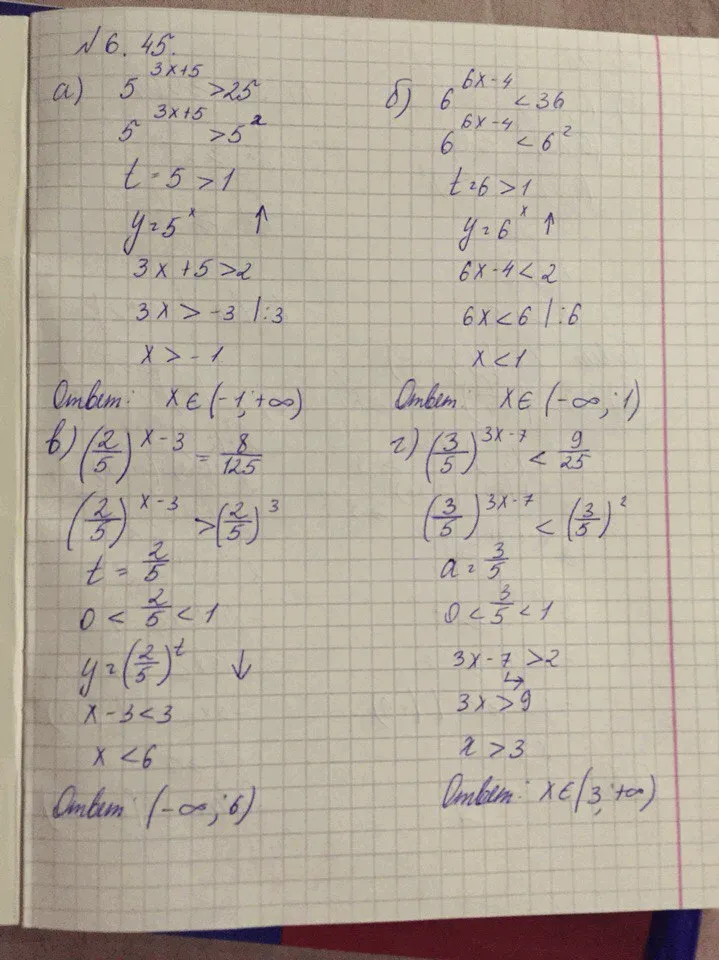 № 6.45.
а) 5^(3x+5) > 25
5^(3x+5) > 5^2
t = 5 > 1
y = 5^x ↑
3x + 5 > 2
3x > -3 |:3
x > -1
Ответ: x ∈ (-1; +∞)
б) 6^(6x-4) < 36
6^(6x-4) < 6^2
t = 6 > 1
y = 6^x ↑
6x - 4 < 2
6x < 6 |:6
x < 1
Ответ: x ∈ (-∞; 1)
в) (2/5)^(x-3) = 8/125
(2/5)^(x-3) > (2/5)^3
t = 2/5
0 < 2/5 < 1
y = (2/5)^t ↓
x - 3 < 3
x < 6
Ответ: (-∞; 6)
г) (3/5)^(3x-7) < 9/25
(3/5)^(3x-7) < (3/5)^2
a = 3/5
0 < 3/5 < 1
3x - 7 > 2
3x > 9
x > 3
Ответ: x ∈ (3; +∞)